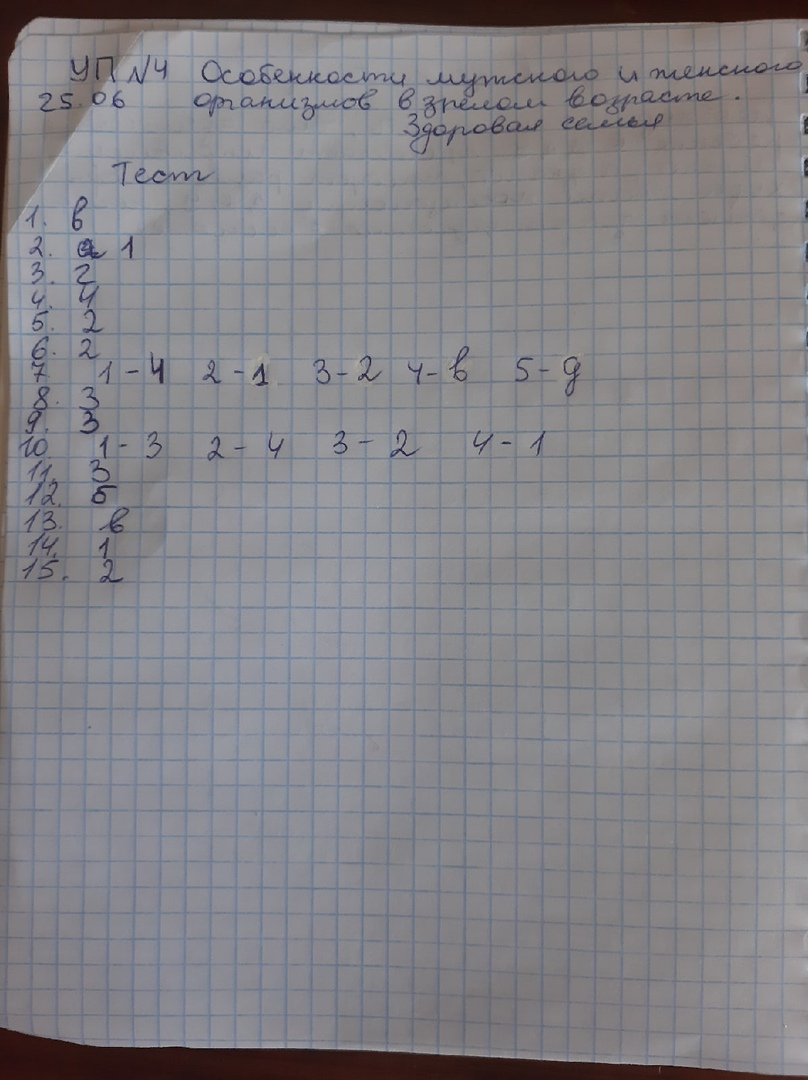 УП №4 Особенности мужского и женского
25.06 организмов в зрелом возрасте.
Здоровая семья
Тест
1. в
2. 1
3. 2
4. 4
5. 2
6. 2
7 1-4 2-1 3-2 4-в 5-д
8. 3
9. 3
10 1-3 2-4 3-2 4-1
11. 3
12. 5
13. в
14. 1
15. 2